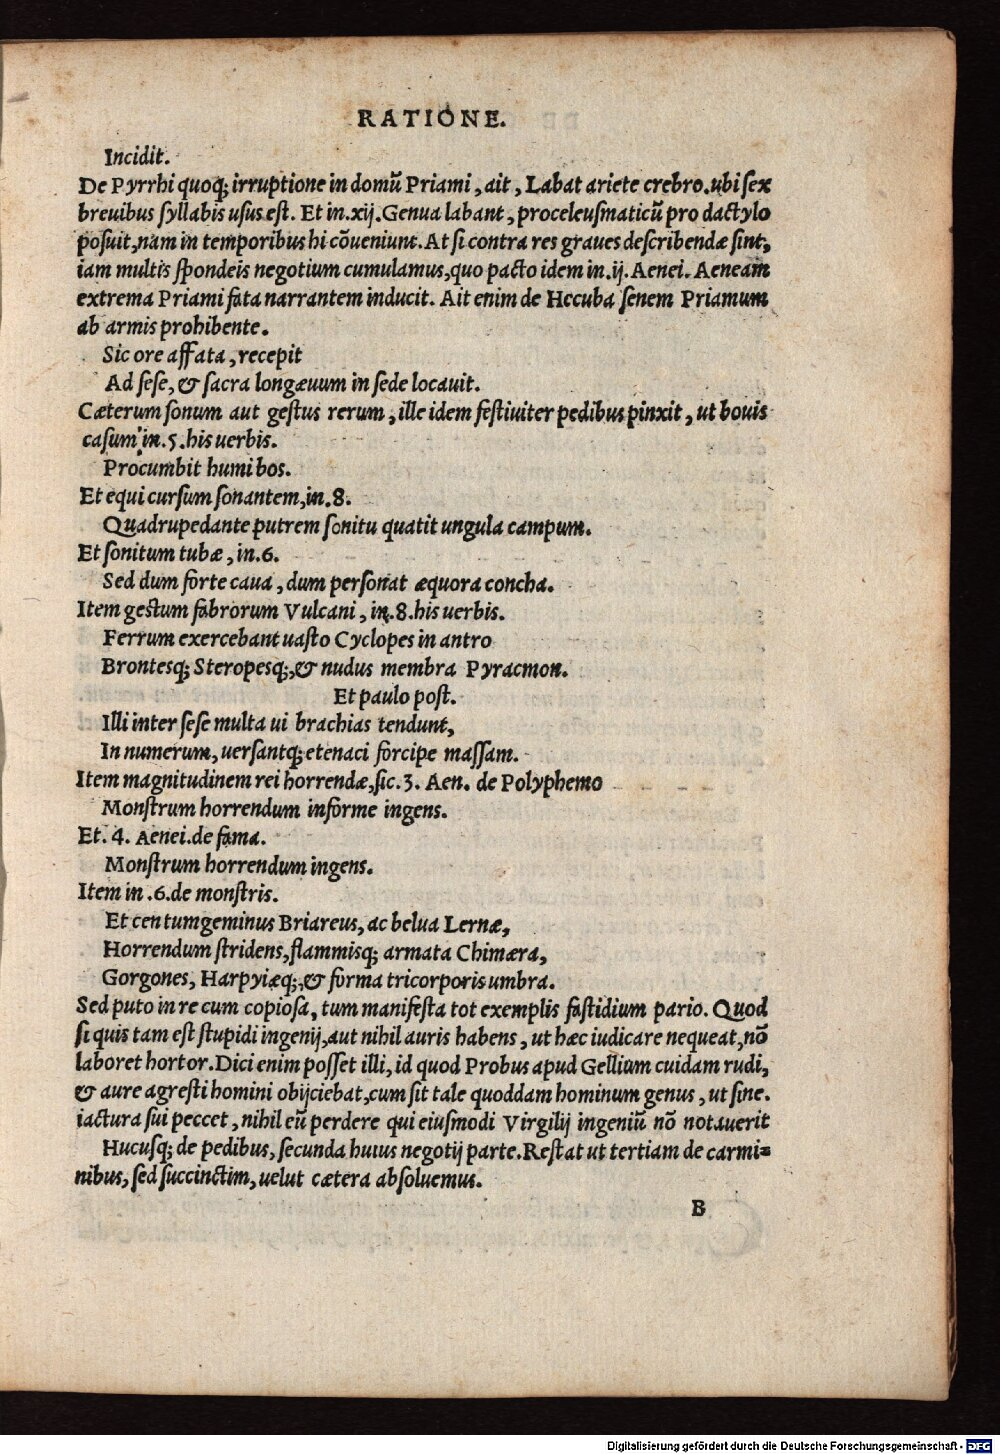 RATIONE.
Incidit.
De Pyrrhi quoq; irruptione in domũ Priami, ait, Labat ariete crebro. ubi sex
breuibus syllabis usus est. Et in .xij. Genua labant, proceleusmaticũ pro dactylo
posuit, nam in temporibus hi cõueniunt. At si contra res graues describendæ sint,
iam multis spondeis negotium cumulamus, quo pacto idem in .ij. Aenei. Aeneam
extrema Priami fata narrantem inducit. Ait enim de Hecuba senem Priamum
ab armis prohibente.
Sic ore affata, recepit
Ad sese, & sacra longæuum in sede locauit.
Cæterum sonum aut gestus rerum, ille idem festiuiter pedibus pinxit, ut bouis
casum in .5. his uerbis.
Procumbit humi bos.
Et equi cursum sonantem, in .8.
Quadrupedante putrem sonitu quatit ungula campum.
Et sonitum tubæ, in .6.
Sed dum forte caua, dum personat æquora concha.
Item gestum fabrorum Vulcani, in .8. his uerbis.
Ferrum exercebant uasto Cyclopes in antro
Brontesq; Steropesq;, & nudus membra Pyracmon.
Et paulo post.
Illi inter sese multa ui brachias tendunt,
In numerum, uersantq; etenaci forcipe massam.
Item magnitudinem rei horrendæ, sic .3. Aen. de Polyphemo
Monstrum horrendum informe ingens.
Et .4. Aenei. de fama.
Monstrum horrendum ingens.
Item in .6. de monstris.
Et centumgeminus Briareus, ac belua Lernæ,
Horrendum stridens, flammisq; armata Chimæra,
Gorgones, Harpyiæq;, & forma tricorporis umbra.
Sed puto in re cum copiosa, tum manifesta tot exemplis fastidium pario. Quod
si quis tam est stupidi ingenij, aut nihil auris habens, ut hæc iudicare nequeat, nõ
laboret hortor. Dici enim posset illi, id quod Probus apud Gellium cuidam rudi,
& aure agresti homini obijciebat, cum sit tale quoddam hominum genus, ut sine
iactura sui peccet, nihil eũ perdere qui eiusmodi Virgilij ingeniũ nõ notauerit
Hucusq; de pedibus, secunda huius negotij parte. Restat ut tertiam de carmi=
nibus, sed succinctim, uelut cætera absoluemus.
B
Digitalisierung gefördert durch die Deutsche Forschungsgemeinschaft - DFG